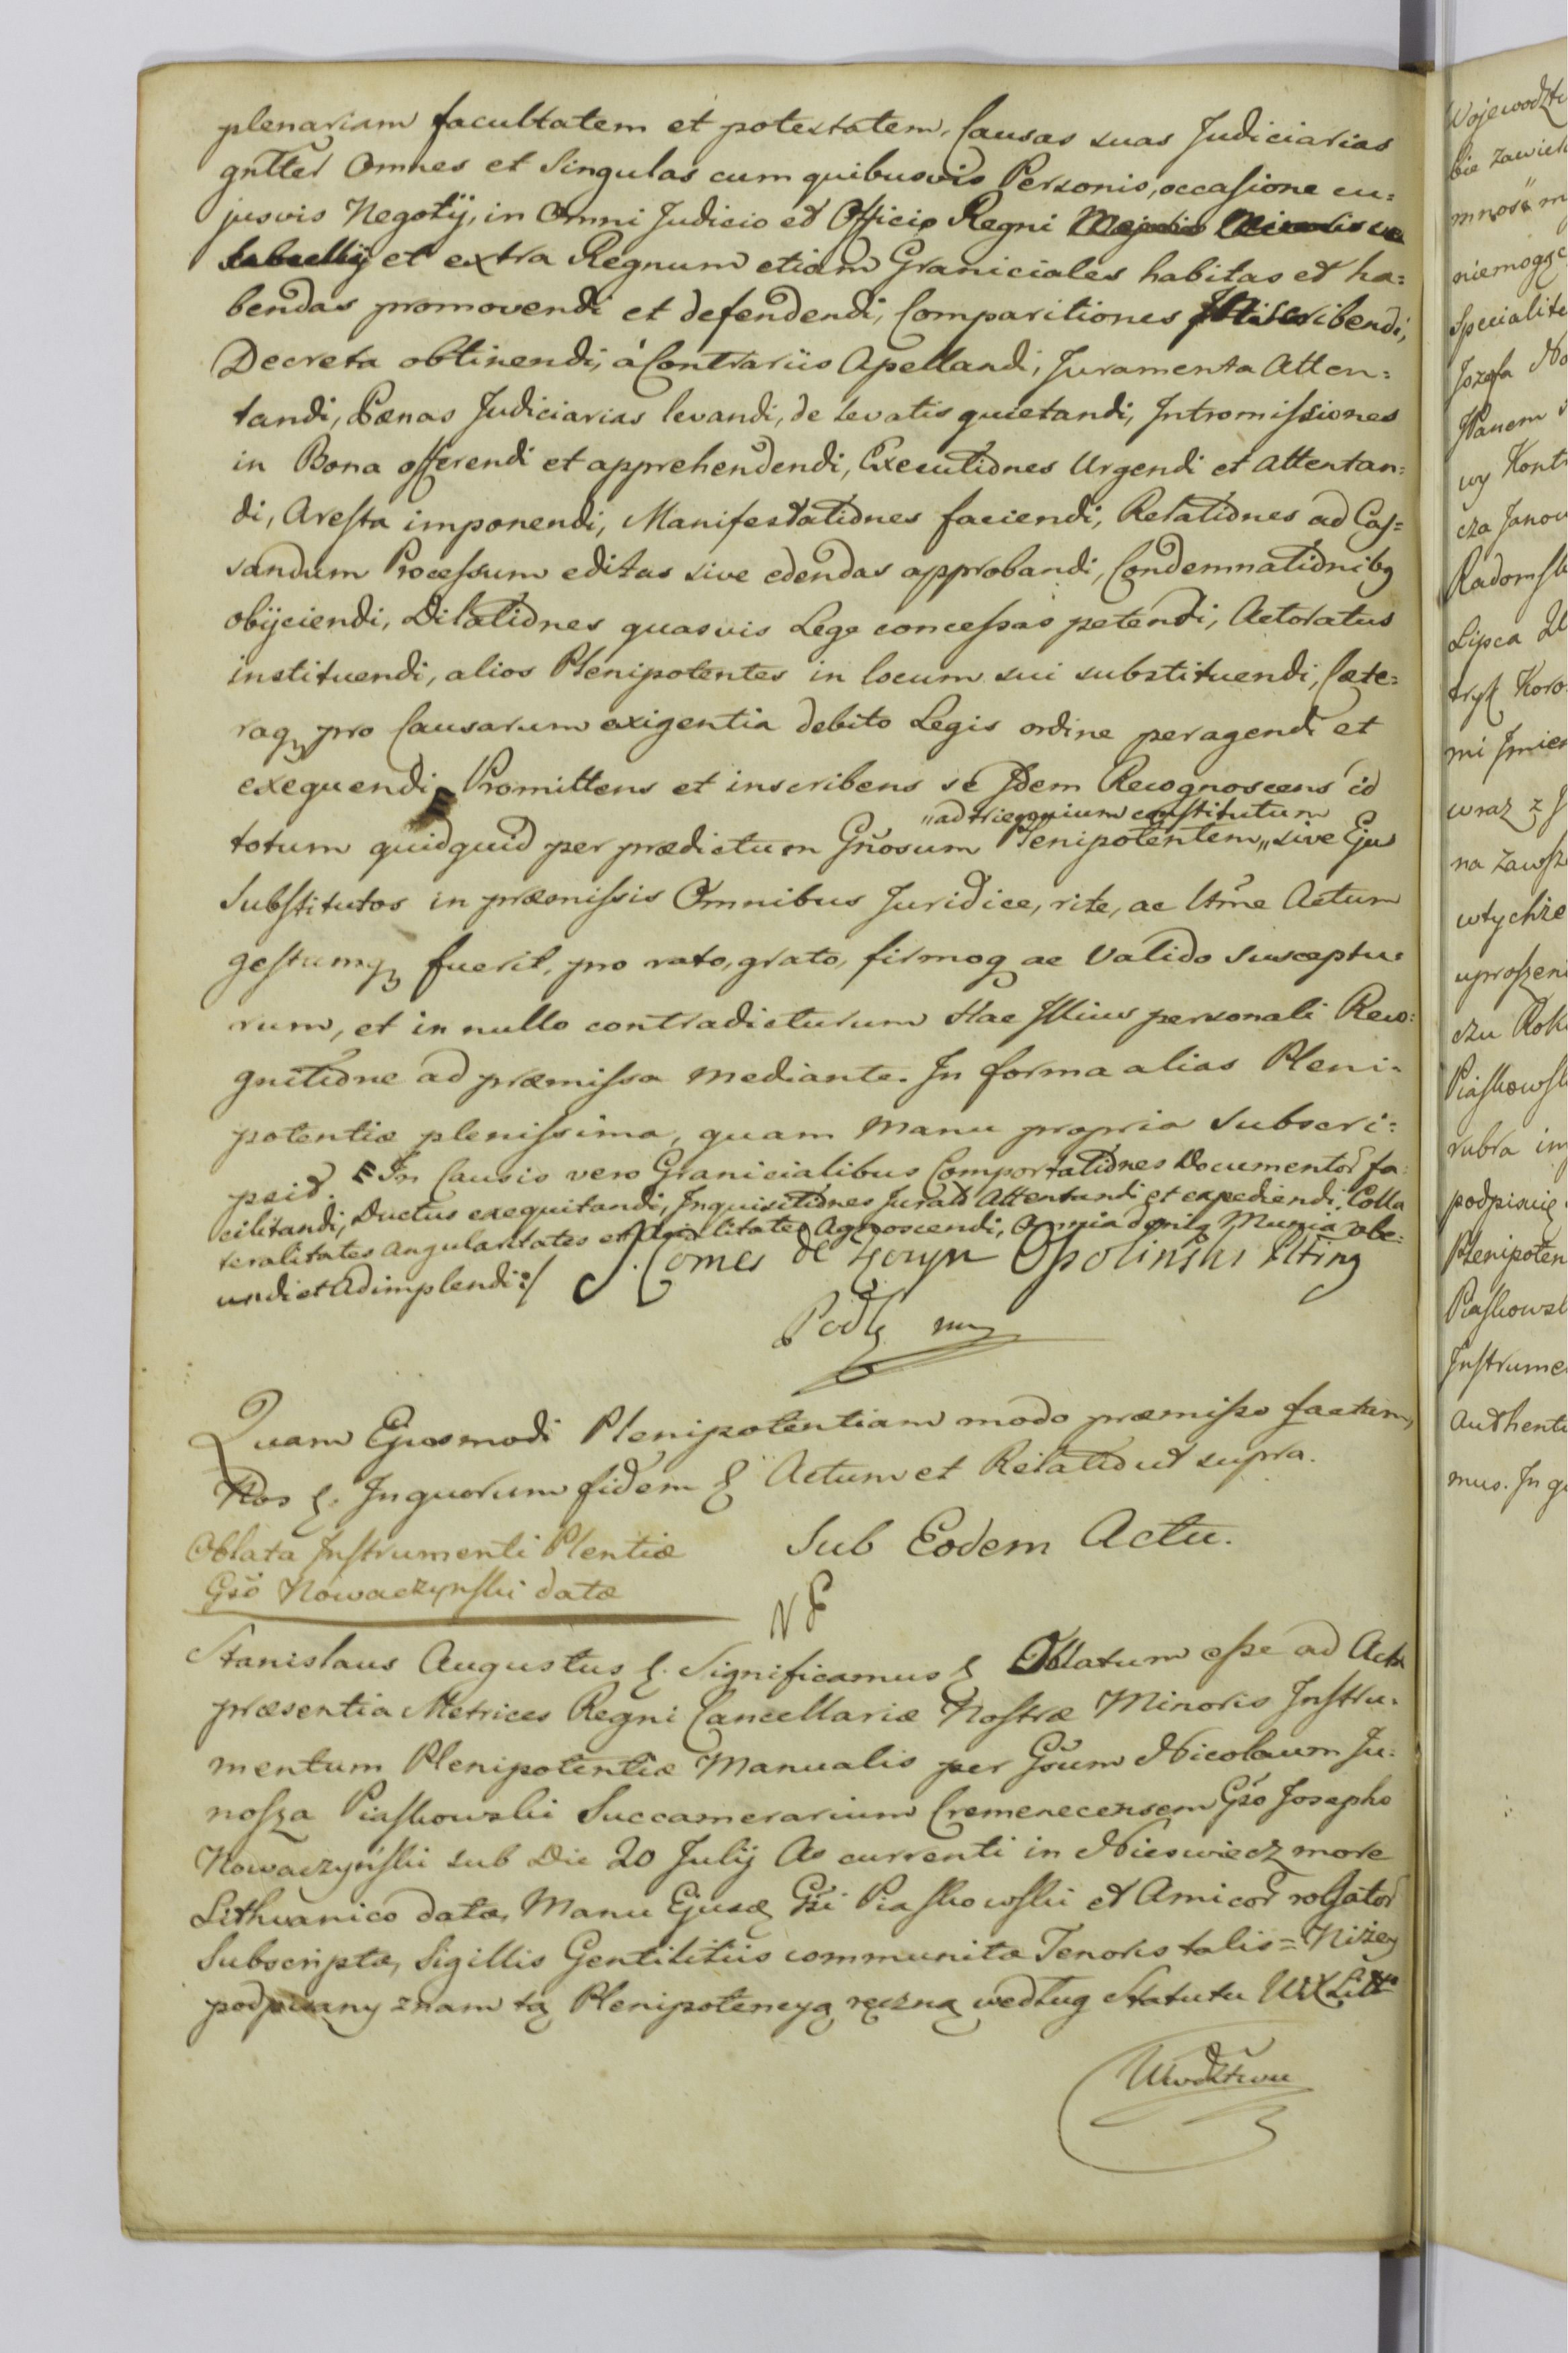 plenariam facultatem et potestatem, Causas suas Judiciarias
gntter Omnes et Singulas cum quibusvis Personis, occasione cu=
jusvis Negotij, in Omni Judicio et Officio Regni
et extra Regnum etiam Graniciales habitas et ha=
bendas promovendi et defendendi, Comparitiones
Decreta obtinendi, á Contrariis Apellandi, Juramenta Atten=
tandi, Pænas Judiciarias levandi, de levatis quietandi, Intromissiones
in Bona offerendi et apprehendendi, Executiones Urgendi et attentan=
di, Aresta imponendi, Manifestationes faciendi, Relationes ad Cas=
sandum Processum editas sive edendas approbandi, Condemnationibg
obijciendi, Dilationes quasvis Lege concessas petendi, Actoratus
instituendi, alios Plenipotentes in locum sui substituendi, Cæte=
raq pro Causarum exigentia debito Legis ordine peragendi et
exequendi Promittens et inscribens se Idem Recognoscens id
„ad triennium constitutum
totum quidquid per prædictum Gñosum Plenipotentem „ sive Ejus
Substitutos in præmissis Omnibus Juridice, rite, ac ltme Actum
gestumq fuerit, pro rato, grato, firmoq ac Valido suscептu=
rum, et in nullo contradicturum Hac Illius personali Reco=
gnitione ad præmissa mediante. In forma alias Pleni=
potentiæ plenissima, quam Manu propria Subscri=
psit. In Causis vero Granicialibus Comportationes Documentor fa=
cilitandi, Ductus exequitandi, Inquisitiones Jurato Attentandi et expediendi, Colla
teralitates Angularitates et Agnoscendi, Omnia Munia obe=
undi et Adimplendi :/ J. Comes de Opoliński
Podl mp
Quam Ejusmodi Plenipotentiam modo præmisso factam,
Nos &. In quorum fidem & Actum et Relatio ut supra.
Oblata Instrumenti Plentiæ
Gso Nowaczynski datæ
Sub Eodem Actu.
Stanislaus Augustus &. Significamus & Oblatum esse ad Acta
præsentia Metrices Regni Cancellariæ Nostræ Minoris Instru=
mentum Plenipotentiæ Manualis per Gsum Nicolaum Ju=
nosza Piaskowski Succamerarium Cremenecensem Gso Josepho
Nowaczyński sub Die 20 Julij Ao currenti in Nieswiecz more
Lithuanico datæ, Manu Ejusd Gsi Piaskowski et Amicor rogator
Subscriptæ, Sigillis Gentilitiis communitæ Tenoris talis = Niżey
podpisany znam tą Plenipotencyą ręczną według Statutu WXLitt
Wodztwu
Wojewodztw
bie zawie
niemogąc
Specialite
Jozefa No
JPanem
wy Kont
cza Janow
Radomsk
Lipca
tryk Koro
mi Jmien
wraz z J
na zawsze
wtychże
uproszeni
czu Rok
Piaskowsk
rubra im
podpisuię
Plenipoten
Piaskowsk
Instrume
Authenti
mus. In q